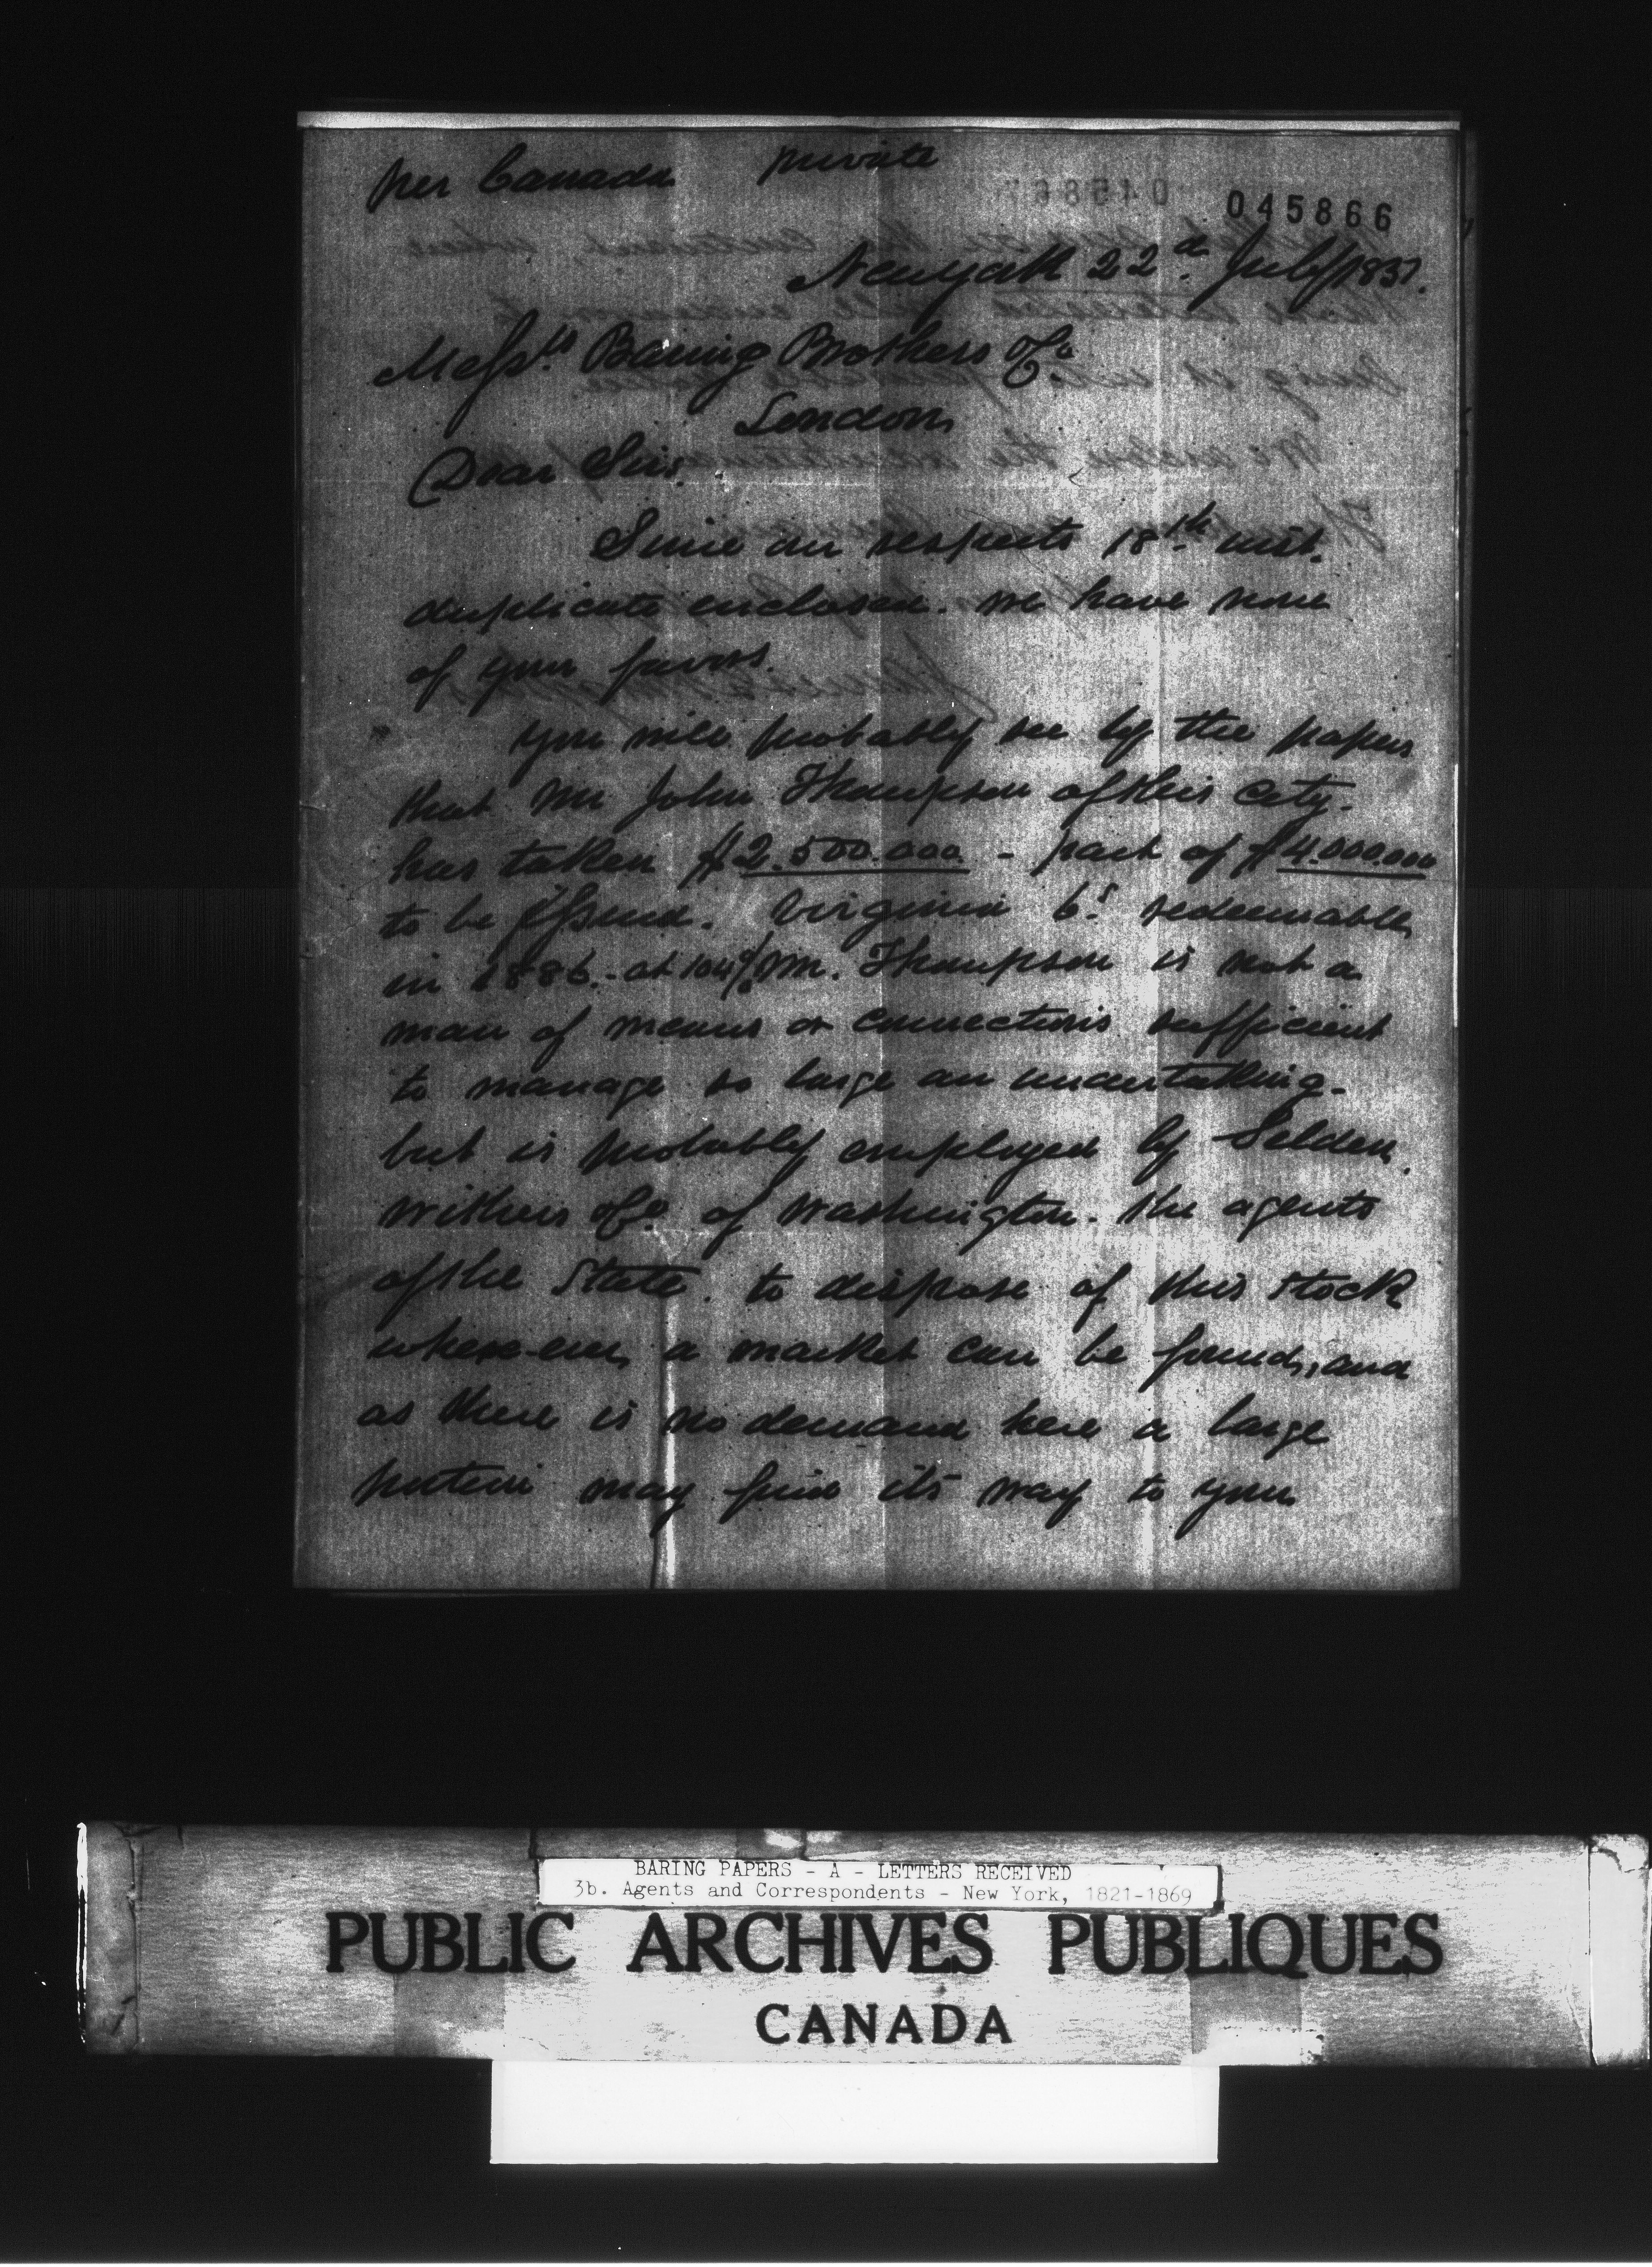 per Canada private
045866
New york 22d. July 1851.
Messrs Baring Brothers & Co
London
Dear Sirs.
Since our respects 18th inst.
duplicate enclosed. we have none
of your favors.
you will probably see by the papers
that Mr John Thompson of this city.
has taken $2.500.000 - part of $4.000.000
to be issued. Virginia 6s. redeemable
in 1886. - at 104% Mr. Thompson is not a
man of means or connections sufficient
to manage so large an undertaking.
but is probably employed by Selden
Withers & Co of Washington. the agents
of the State. to dispose of this stock
where-ever a market can be found, and
as there is no demand here a large
portion may find its way to you
BARING PAPERS - A - LETTERS RECEIVED
3b. Agents and Correspondents - New York, 1821-1869
PUBLIC ARCHIVES PUBLIQUES
CANADA